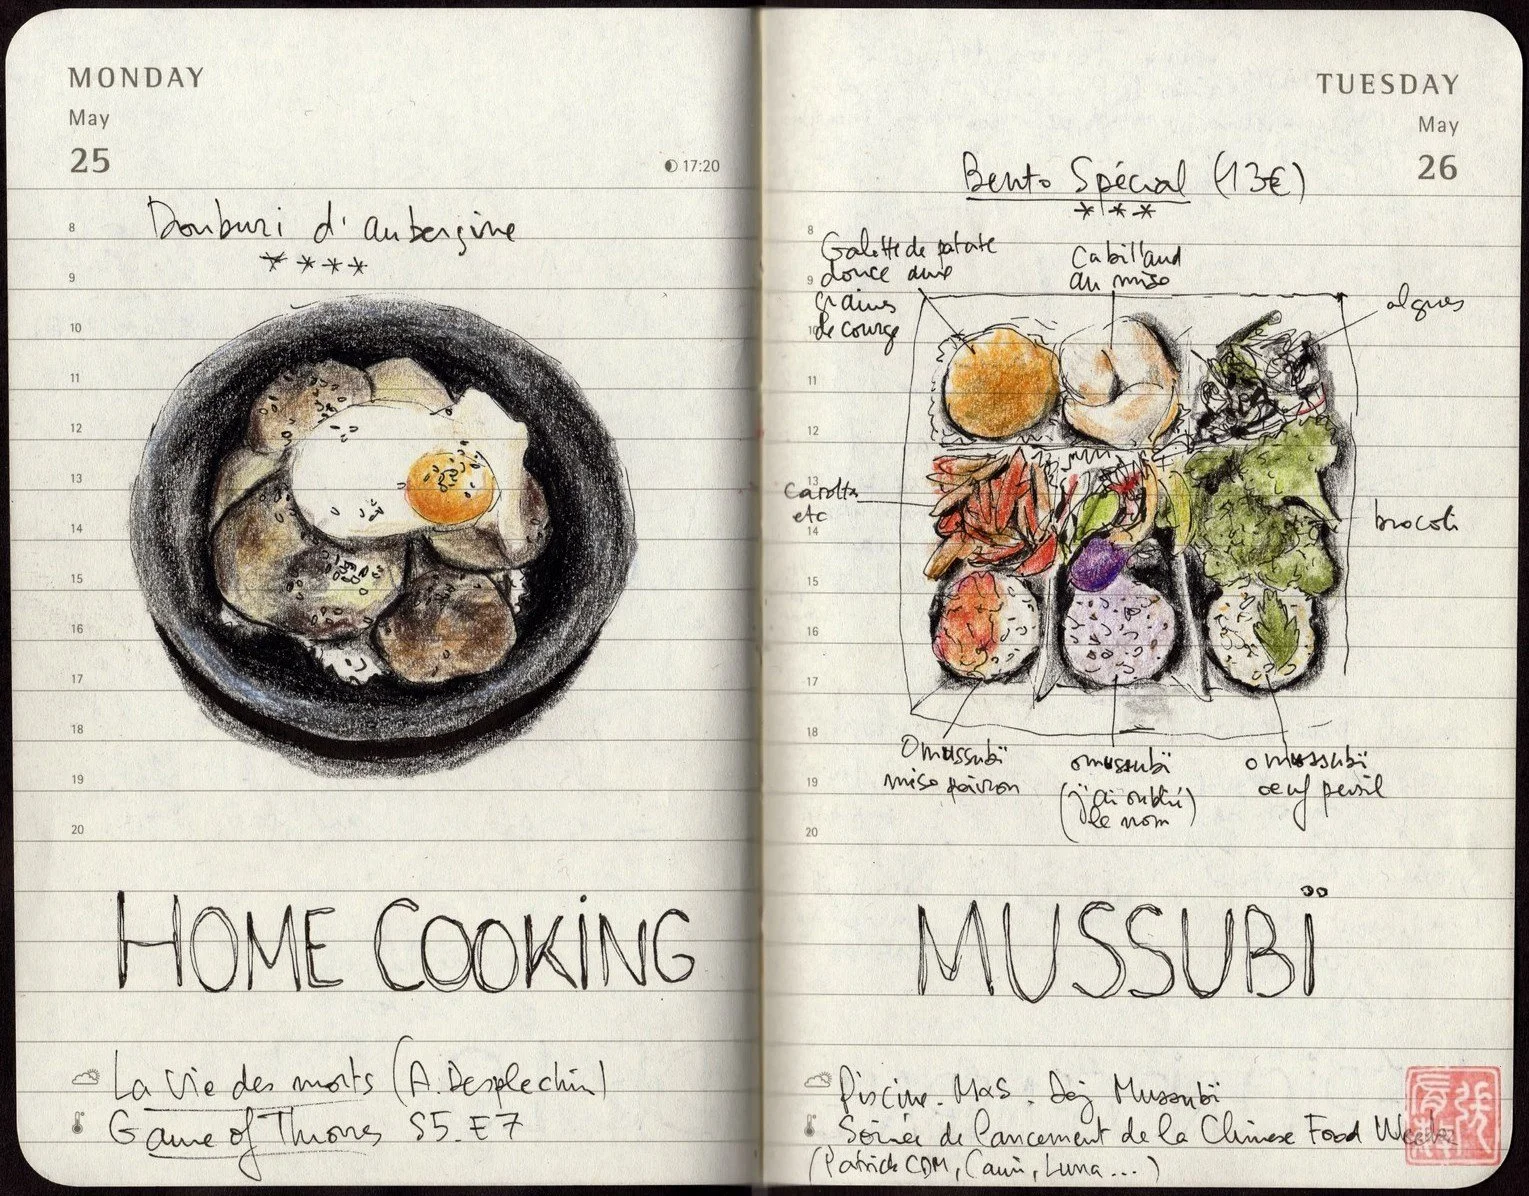 MONDAY
May
25
17:20
Donburi d'aubergine
****
8
9
10
11
12
13
14
15
16
17
18
19
20
HOME COOKING
La Vie des morts (A. Desplechin)
Game of Thrones S5.E7
TUESDAY
May
26
Bento Spécial (13€)
***
Galette de patate
douce avec
graines
de courge
Cabillaud
au miso
algues
carottes
etc
brocoli
8
9
10
11
12
13
14
15
16
17
18
19
20
Omussubï
miso poivron
omussubï
(j'ai oublié
le nom)
omussubï
oeuf persil
MUSSUBÏ
Piscine. MxS. Dej Mussubï
Soirée de lancement de la Chinese Food Week
(Patrick CDM, Cam, Luna...)